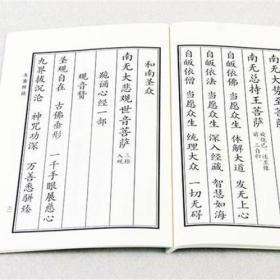 南无总持王菩萨
自皈依佛 当愿众生 体解大道 发无上心
自皈依法 当愿众生 深入经藏 智慧如海
自皈依僧 当愿众生 统理大众 一切无碍
和南圣众
南无大悲观世音菩萨 三称
跪诵心经一部
观音赞
圣观自在 古佛垂形 千手眼展慈心
九界拔沉沦 神咒功深 万善悉骈臻